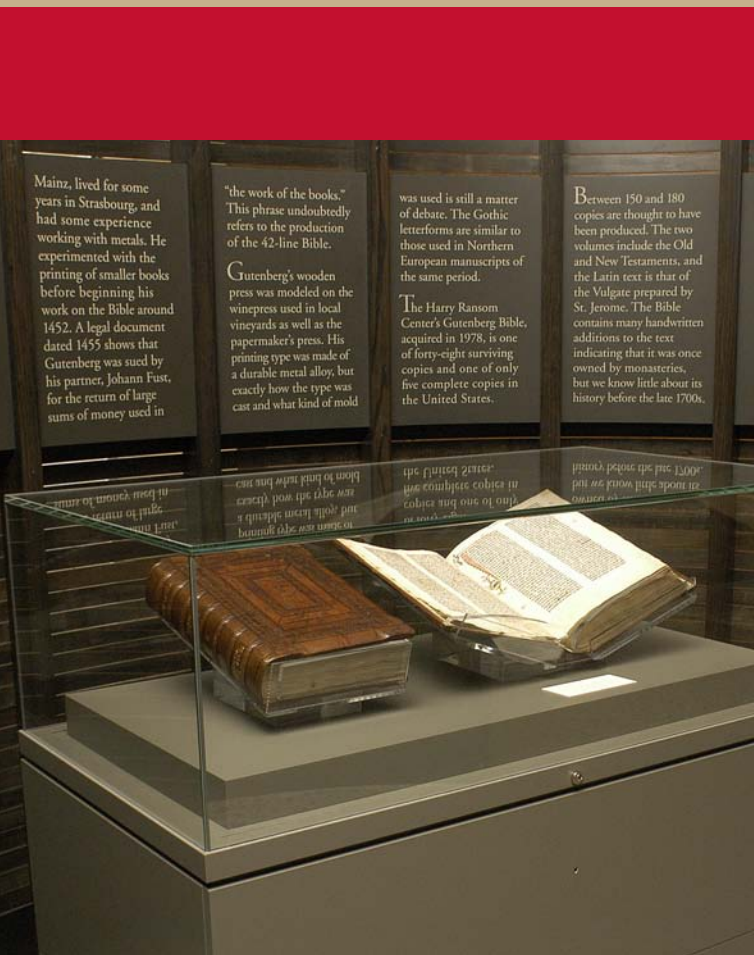 Mainz, lived for some
years in Strasbourg, and
had some experience
working with metals. He
experimented with the
printing of smaller books
before beginning his
work on the Bible around
1452. A legal document
dated 1455 shows that
Gutenberg was sued by
his partner, Johann Fust,
for the return of large
sums of money used in
“the work of the books.”
This phrase undoubtedly
refers to the production
of the 42-line Bible.
Gutenberg’s wooden
press was modeled on the
winepress used in local
vineyards as well as the
papermaker’s press. His
printing type was made of
a durable metal alloy, but
exactly how the type was
cast and what kind of mold
was used is still a matter
of debate. The Gothic
letterforms are similar to
those used in Northern
European manuscripts of
the same period.
The Harry Ransom
Center’s Gutenberg Bible,
acquired in 1978, is one
of forty-eight surviving
copies and one of only
five complete copies in
the United States.
Between 150 and 180
copies are thought to have
been produced. The two
volumes include the Old
and New Testaments, and
the Latin text is that of
the Vulgate prepared by
St. Jerome. The Bible
contains many handwritten
additions to the text
indicating that it was once
owned by monasteries,
but we know little about its
history before the late 1700s.